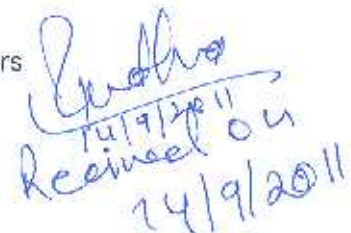 rs
Sudha
14/9/2011
Received on
14/9/2011